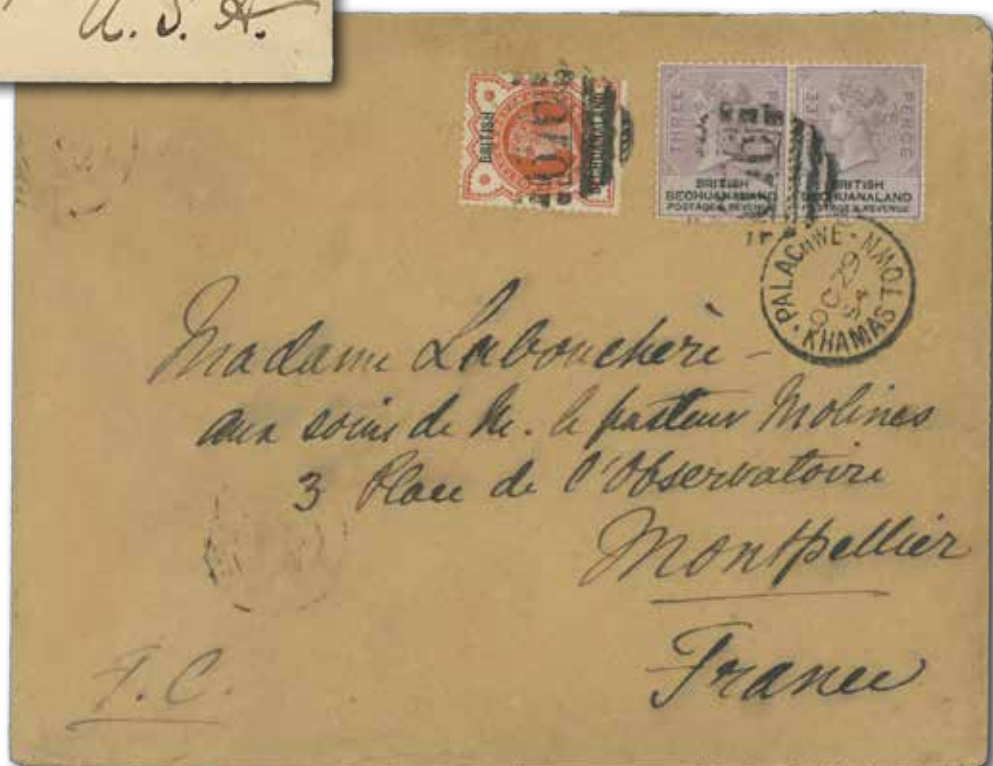 U. S. A.
BRITISH
BECHUANALAND
THREE PENCE
BRITISH
BECHUANALAND
POSTAGE & REVENUE
THREE PENCE
BRITISH
BECHUANALAND
POSTAGE & REVENUE
PALACHWE - KHAMAS TOWN
OC 29
Madame Labouchère -
aux soins de M. le pasteur Molines
3 Place de l'Observatoire
Montpellier
France
T. C.